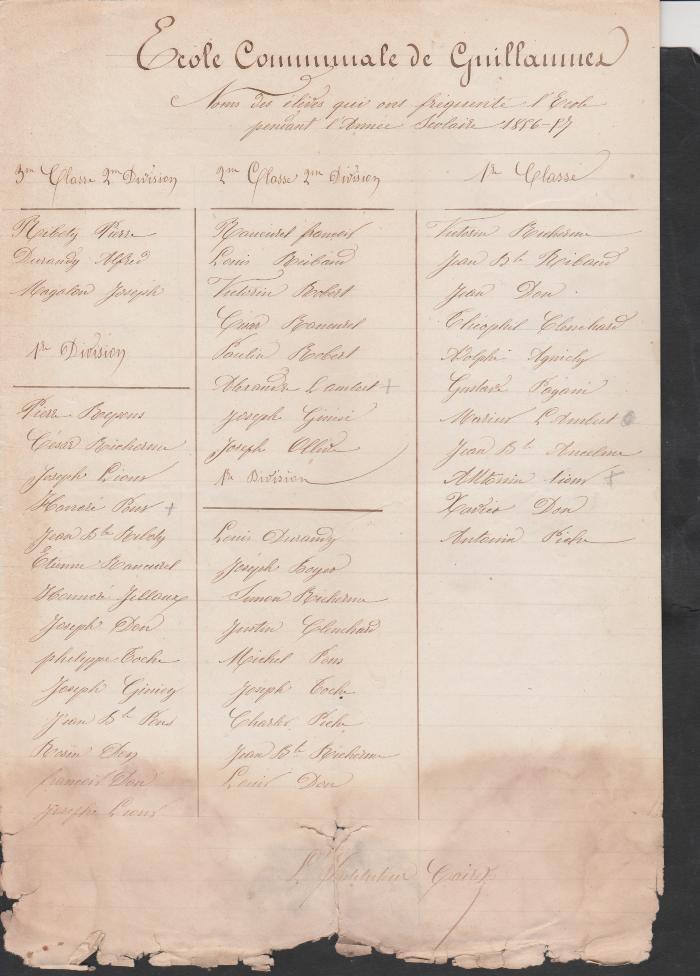 Ecole Communale de Guillaumes
Noms des élèves qui ont fréquenté l'Ecole
pendant l'Année Scolaire 1856-57
3me Classe 2me Division
Riboty Pierre
Durandy Alfred
Magalon Joseph
1re Division
Pierre
César Richerme
Joseph Lions
Honoré Pons
Jean Bte Riboty
Etienne Rancurel
Honnoré Jilloux
Joseph Don
phelippe Toche
Joseph Giniey
Jean Bte Pons
Rosin Don
francois Don
Joseph Lions
2me Classe 2me Division
Rancurel francois
Louis Ribaud
Victorin Robert
César Rancurel
Paulin Robert
Lambert
Joseph Ginié
Joseph Ollive
1re Division
Louis Durandy
Joseph Boyer
Simon Richerme
Justin Clenchard
Michel Pons
Joseph Toche
Charles Piche
Jean Bte Richerme
Louis Don
1re Classe
Victorin Richerme
Jean Bte Ribaud
Jean Don
Théophil Clenchard
Adolphe
Gustave Pagani
Marius Lambert
Jean Bte Ancelme
Antonin Lions
Xavier Don
Antonin Piche
L'Instituteur